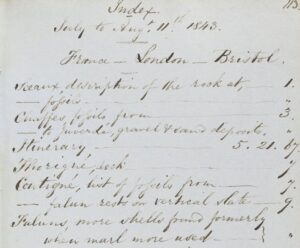 Index.
July to Augt. 11th 1843.
France — London — Bristol.
Sceaux, description of the rock at, — 1.
— fossils — "
Chuffes, fossils from — 3.
— to Juvardi, gravel & sand deposits. "
Itinerary — 5. 21. 67
Thorigné, rock —
Cartigné, list of fossils from — 7.
— falun rests on vertical slate — 9.
Faluns, more shells found formerly
when marl more used —